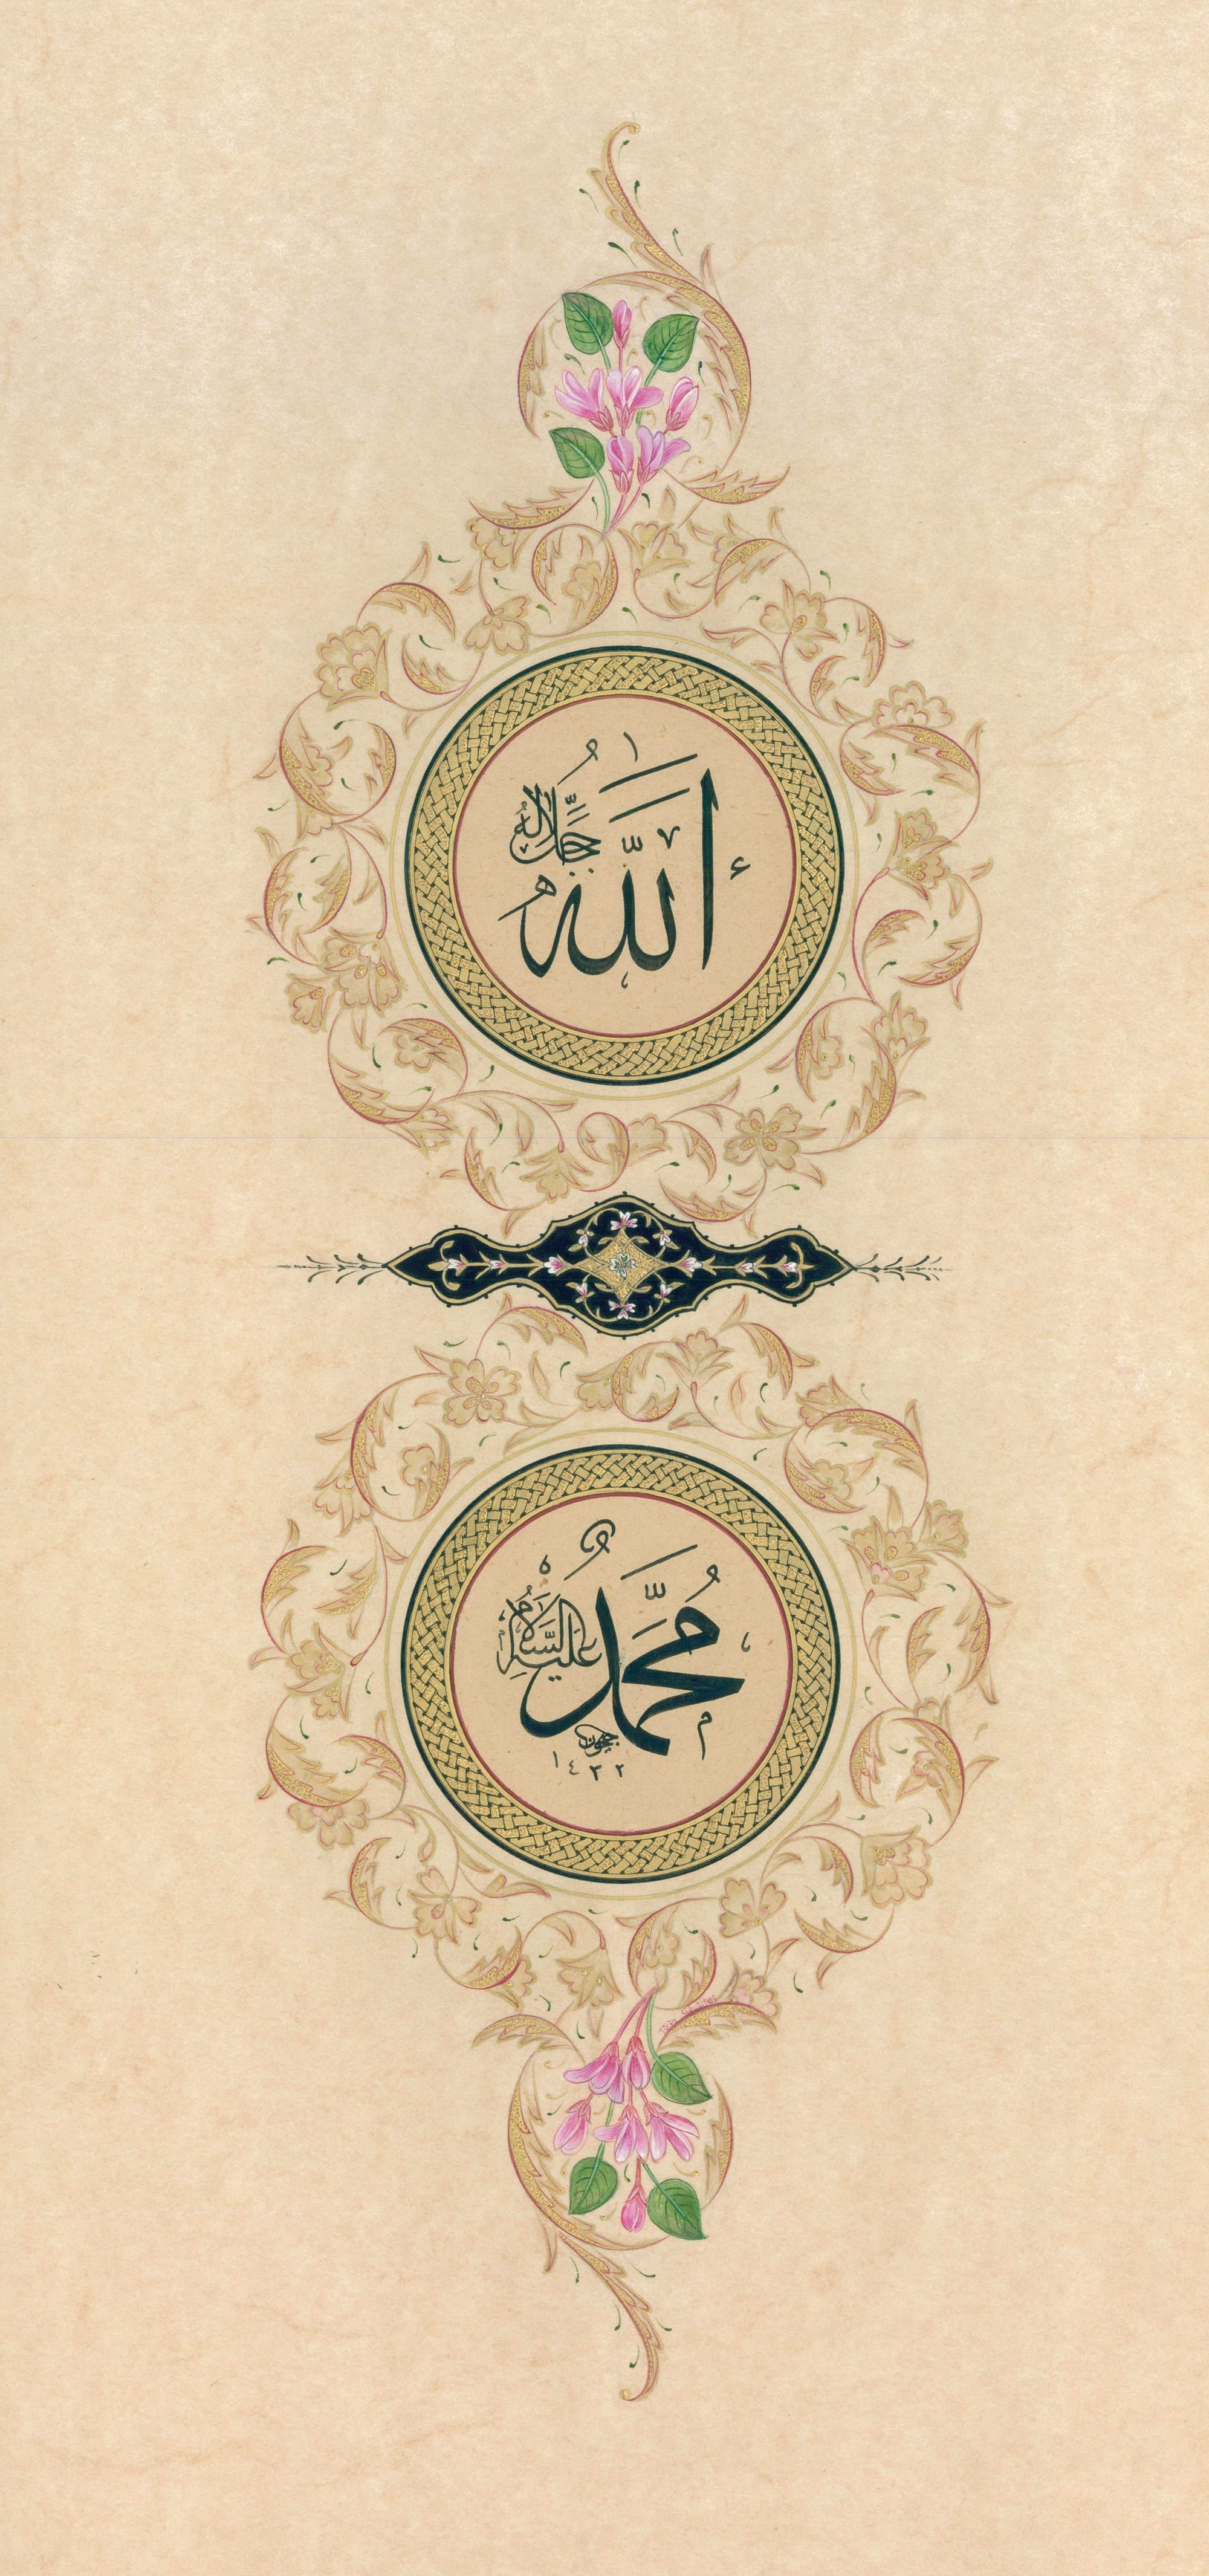 الله
جل جلاله
محمد
عليه السلام
١٤٣٢